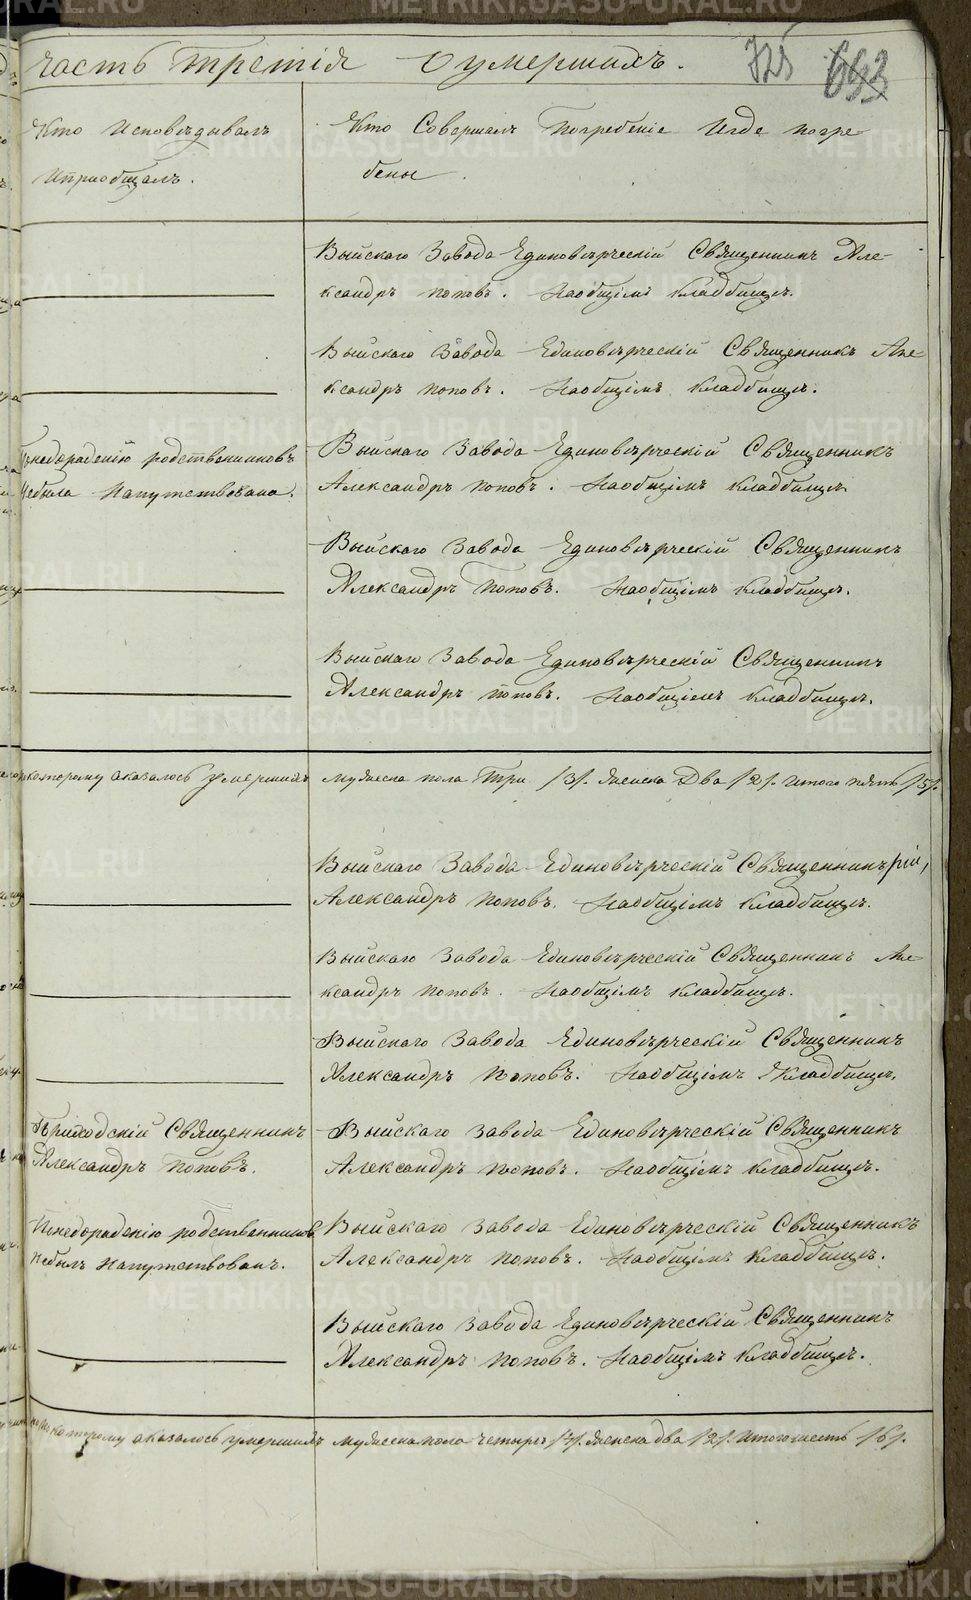 часть третія о умершихъ.
725 693
Кто Исповѣдывалъ
Ипріобщалъ.
Кто Совершалъ Погребеніе Игдѣ погре
бены
Выйскаго Завода Единовѣрческій Священникъ Але-
ксандръ Поповъ. Наобщемъ кладбищѣ.
Выйскаго Завода Единовѣрческій Священникъ Але-
ксандръ Поповъ. Наобщемъ Кладбищѣ.
Понедораденію родственниковъ
Небыла Напутствована.
Выйскаго Завода Единовѣрческій Священникъ
Александръ Поповъ. Наобщемъ кладбищѣ.
Выйскаго Завода Единовѣрческій Священникъ
Александръ Поповъ. Наобщемъ кладбищѣ.
Выйскаго Завода Единовѣрческій Священникъ
Александръ Поповъ. Наобщемъ Кладбищѣ.
которому оказалось умершихъ мужеска пола Три /3/. женска Два /2/. Итого пять /5/.
Выйскаго Завода Единовѣрческій Священникъ
Александръ Поповъ. Наобщемъ Кладбищѣ.
Выйскаго Завода Единовѣрческій Священникъ Але-
ксандръ Поповъ. Наобщемъ Кладбищѣ.
Выйскаго Завода Единовѣрческій Священникъ
Александръ Поповъ. Наобщемъ Кладбищѣ.
Приходскій Священникъ
Александръ Поповъ.
Выйскаго Завода Единовѣрческій Священникъ
Александръ Поповъ. Наобщемъ Кладбищѣ.
Понедораденію родственниковъ
Небылъ Напутствованъ.
Выйскаго Завода Единовѣрческій Священникъ
Александръ Поповъ. Наобщемъ Кладбищѣ.
Выйскаго Завода Единовѣрческій Священникъ
Александръ Поповъ. Наобщемъ Кладбищѣ.
которому оказалось умершихъ мужеска пола четыре /4/. женска два /2/. Итого шесть /6/.
METRIKI.GASO-URAL.RU